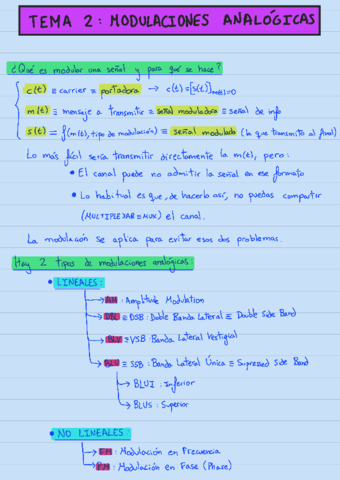 TEMA 2: MODULACIONES ANALÓGICAS
¿Qué es modular una señal y para qué se hace?
c(t) ≡ carrier ≡ portadora → c(t) = [s(t)]m(t)=0
m(t) ≡ mensaje a transmitir ≡ señal moduladora ≡ señal de info
s(t) = f(m(t), tipo de modulación) ≡ señal modulada (lo que transmito al final)
Lo más fácil sería transmitir directamente la m(t), pero:
• El canal puede no admitir la señal en ese formato
• Lo habitual es que, de hacerlo así, no puedas compartir
(MULTIPLEXAR ≡ AUX) el canal.
La modulación se aplica para evitar esos dos problemas.
Hay 2 tipos de modulaciones analógicas:
• LINEALES:
AM: Amplitude Modulation
DBL ≡ DSB: Doble Banda Lateral ≡ Double Side Band
BLV ≡ VSB: Banda Lateral Vestigial
BLU ≡ SSB: Banda Lateral Única ≡ Supressed Side Band
BLUI: Inferior
BLUS: Superior
• NO LINEALES:
FM: Modulación en Frecuencia
PM: Modulación en Fase (Phase)